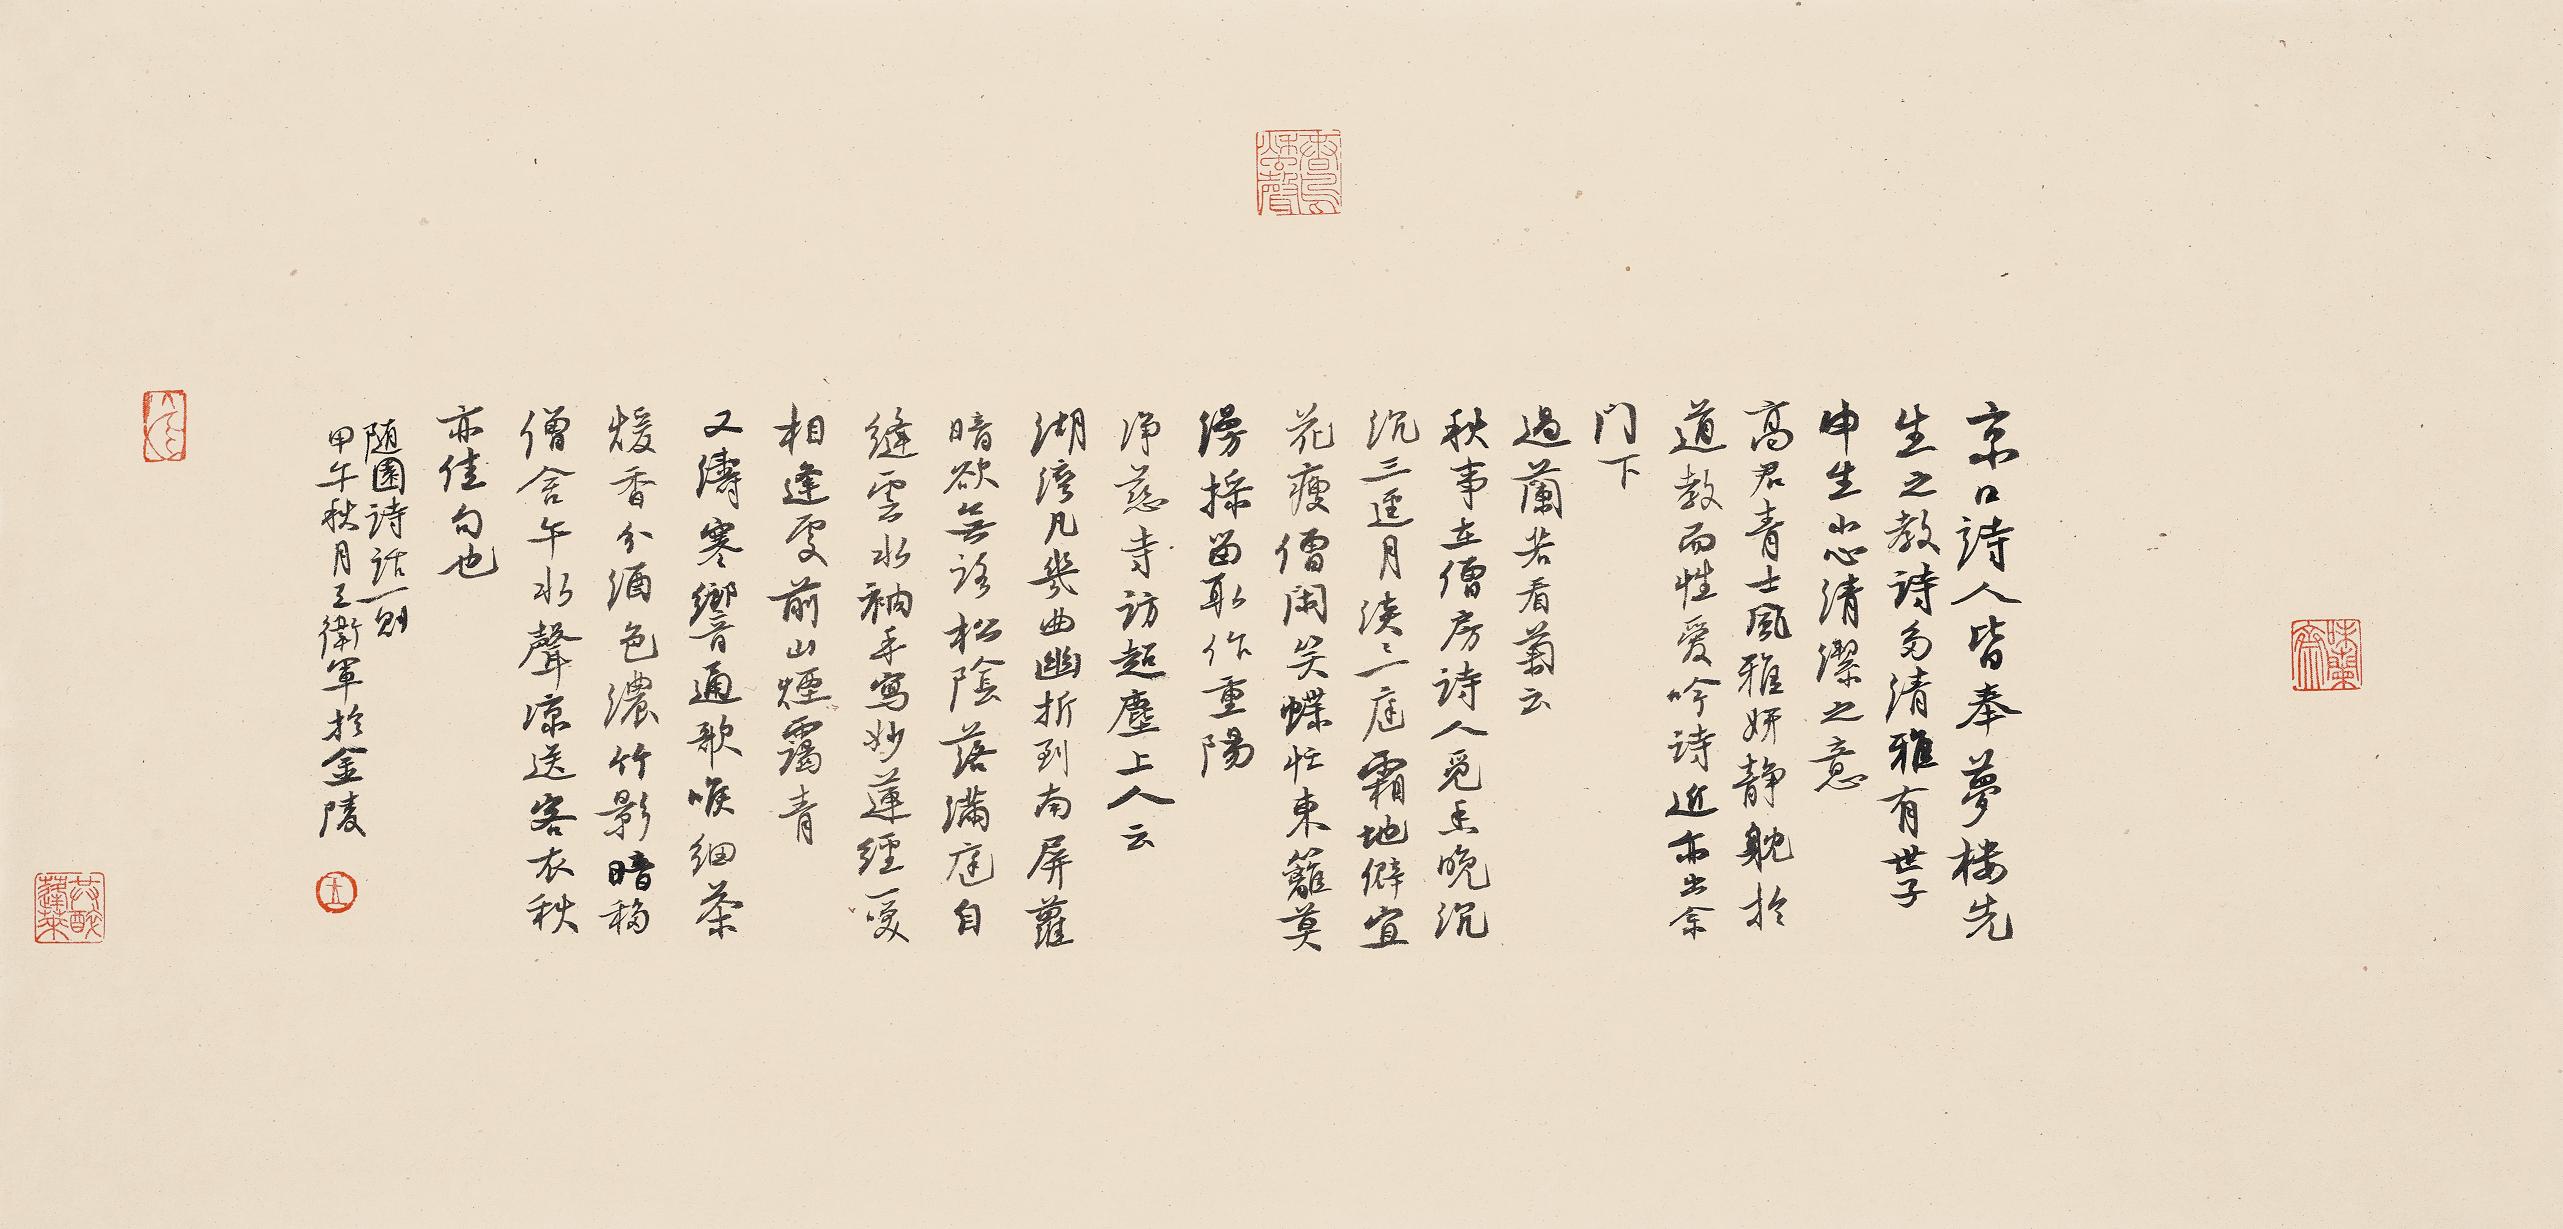 京口詩人皆奉夢樓先
生之教詩多清雅有世子
申生小心清潔之意
高君青士風雅妍靜耽於
道教而性愛吟詩近亦出余
门下
過蘭若看菊云
秋事在僧房詩人覓未晚沉
沉三逕月淡二庭霜地僻宜
花瘦僧閑笑蝶忙東籬莫
謾採留取作重陽
净慈寺访超塵上人云
湖湾凡幾曲幽折到南屏蘿
暗欲無路松陰落满庭白
縫雲水衲手寫妙蓮經一笑
相逢處前山煙靄青
又濤寒響音通歌喉细茶
煖香分酒色濃竹影暗移
僧舍午水聲凉送客衣秋
亦佳句也
随園詩话一則
甲午秋月王衛軍於金陵
味蘭齋